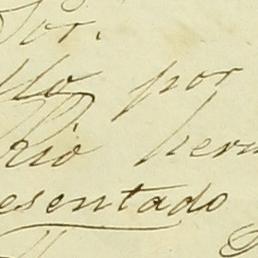 Sor.
llo por
rio herm
esentado